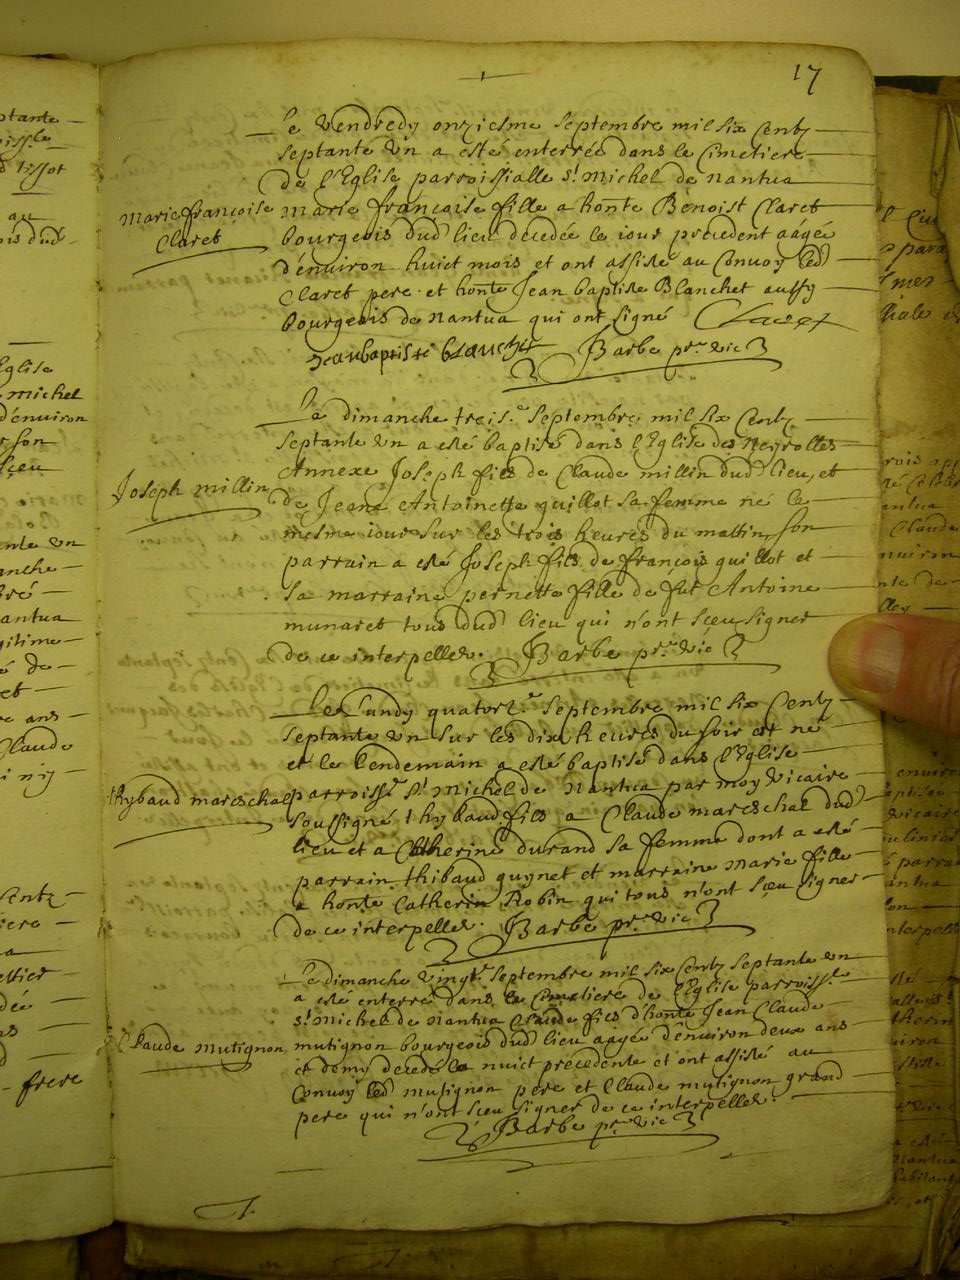 17
Le Vendredy onziesme Septembre mil six Centz
septante un a esté enterrée dans le Cimetiere
de l'Eglise parroissialle st Michel de nantua
marie françoise
Claret
marie françoise fille a honte Benoist Claret
bourgeois dud lieu decedée le iour precedent aagé
d'environ huict mois et ont assisté au Convoy led
Claret pere et honte Jean baptiste Blanchet aussy
bourgeois de nantua qui ont signé Claret
Jean baptiste blanchet Barbe pre vic
Le dimanche treise Septembre mil six Centz
septante un a esté baptisé dans l'Eglise des neyrolles
Annexe Joseph fils de Claude millin dud lieu, et
Joseph millin
de Jeane Antoinette quillot sa femme né le
mesme iour sur les trois heures du mattin, son
parrain a esté Joseph fils de françois quillot et
sa marraine pernette fille de fut Antoine
munaret tous dud lieu qui n'ont sceu signer
de ce interpellez. Barbe pre vic
Le Lundy quatorze Septembre mil six Centz
septante un sur les dix heures du soir est né
et le lendemain a esté baptisé dans l'Eglise
thybaud mareschal
parroisse st michel de nantua par moy vicaire
soussigné thybaud fils a Claude mareschal dud
lieu et a Catherine durand sa femme dont a esté
parrain thibaud guynet et marraine marie fille
a honte Catherin Robin qui tous n'ont sceu signer
de ce interpellez. Barbe pre vic
Le dimanche vingte septembre mil six Centz septante un
a esté enterré dans le Cimetiere de l'Eglise parroissle
st michel de nantua Claude fils d'honte Jean Claude
Claude mutignon
mutignon bourgeois dud lieu aagé d'environ deux ans
et demy decedé la nuict precedente et ont assisté au
Convoy led mutignon pere et Claude mutignon grand
pere qui n'ont sceu signer de ce interpellez.
Barbe pre vic